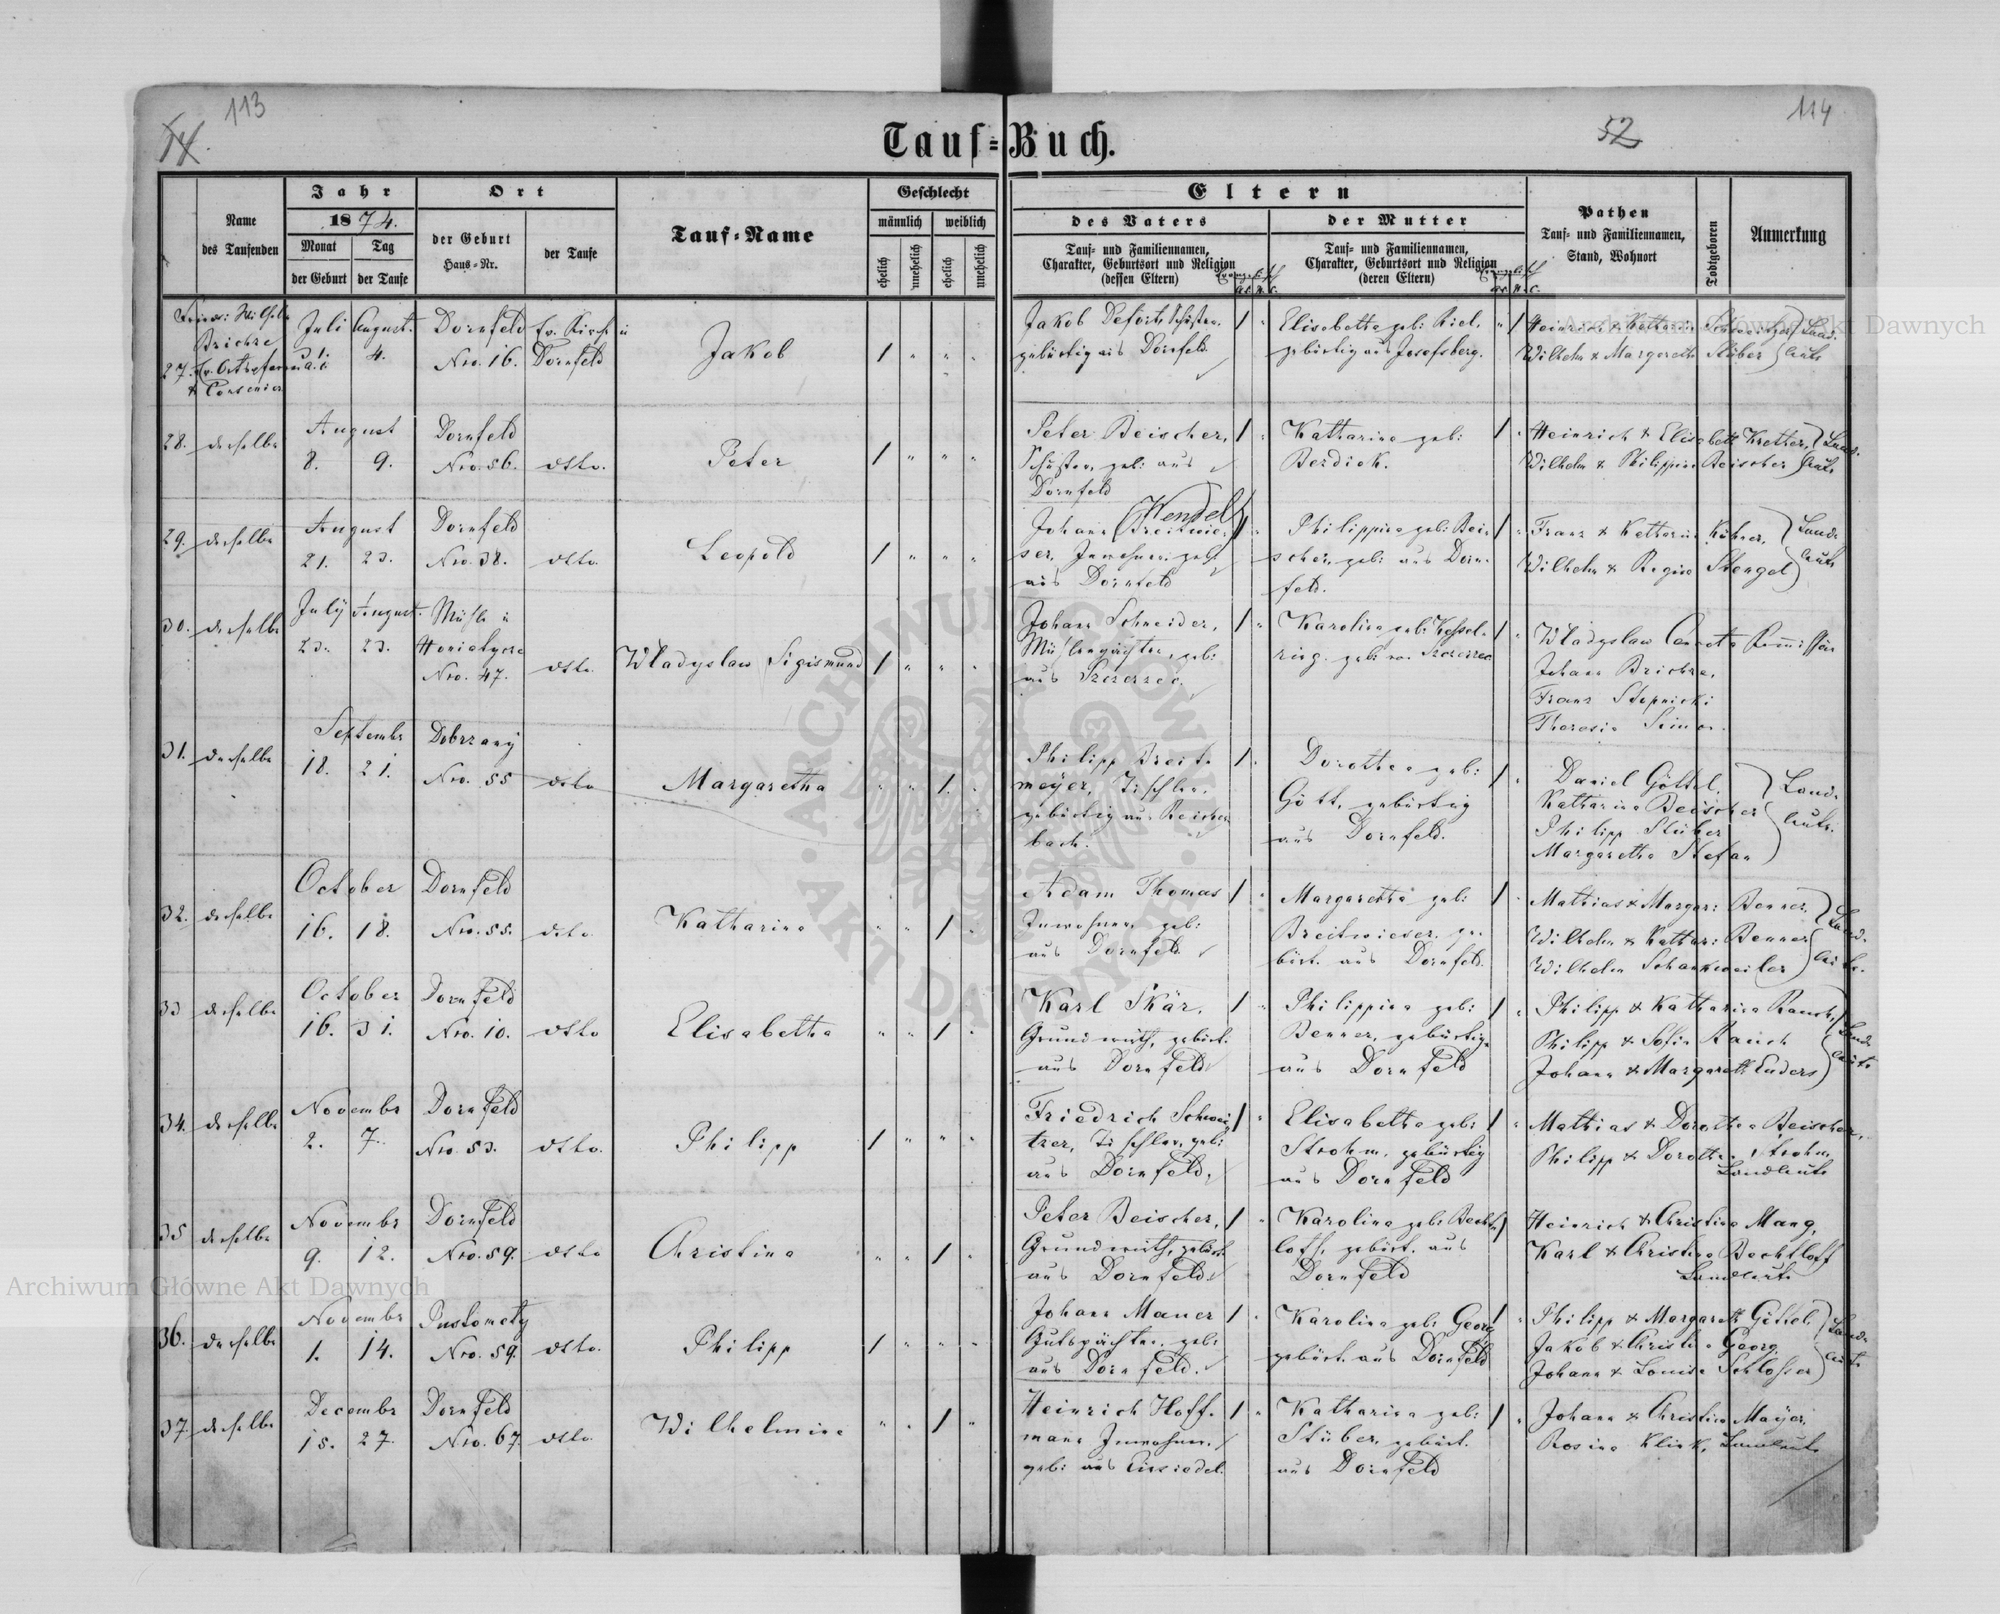 113
114
52
Tauf=Buch.
Name
des Taufenden
Jahr
1874.
Monat
der Geburt
Tag
der Taufe
Ort
der Geburt
Haus=Nr.
der Taufe
Tauf=Name
Geschlecht
männlich
weiblich
ehelich
unehelich
ehelich
unehelich
Eltern
des Vaters
Tauf= und Familiennamen,
Charakter, Geburtsort und Religion
(dessen Eltern)
der Mutter
Tauf= und Familiennamen,
Charakter, Geburtsort und Religion
(deren Eltern)
Pathen
Tauf= und Familiennamen,
Stand, Wohnort
Todtgeboren
Anmerkung
27.
Juli August
4.
Dornfeld
Nro. 16.
Dornfeld
Jakob
Jakob
gebürtig aus Dornfeld.
Elisabetha geb:
gebürtig aus Josefsberg.
Wilhelm & Margaretha Stüber
28. derselbe
August
8. 9.
Dornfeld
Nro. 56.
dtto.
Peter
Peter Beischer,
Schuster, geb: aus
Dornfeld
Katharina geb:
Berdick.
Heinrich & Elisabeth Kretter,
Wilhelm & Philippina Beischer
Landleute
29. derselbe
August
21. 23.
Dornfeld
Nro. 38.
dtto.
Leopold
Wendel
Johann Breitwie-
ser, Inwohner, geb:
aus Dornfeld
Philippina geb: Bei-
scher, geb: aus Dorn-
feld.
Franz & Katharina
Wilhelm & Regina Stengel
Landleute
30. derselbe
July August.
23. 23.
Mühle
Nro. 47.
dtto.
Wladyslaw Sigismund
Johann Schneider,
Mühlenpächter, geb:
aus Szczerzec.
Karolina geb: Kessel-
ring. geb:
Wladyslaw
Johann Brichze,
Franz Stepnicki
Theresia
31. derselbe
Septembr
18. 21.
Dobrzany
Nro. 55
dtto
Margaretha
Philipp Breit-
meyer, Tischler,
gebürtig aus Reichen
bach.
Dorothea geb:
Gött, gebürtig
aus Dornfeld.
Daniel Göttel,
Katharina Beischer
Philipp Stüber
Margaretha Stefan
Landleute.
32. derselbe
October
16. 18.
Dornfeld
Nro. 55.
dtto.
Katharina
Adam Thomas
Inwohner geb:
aus Dornfeld.
Margaretha geb:
Breitwieser, ge-
bürt. aus Dornfeld.
Mathias & Margar: Benner,
Wilhelm & Kathar: Benner
Wilhelm Schankweiler
Landleute.
33 derselbe
October
16. 31.
Dornfeld
Nro. 10.
dtto
Elisabetha
Karl Skär,
Grundwirth, gebürt.
aus Dornfeld
Philippina geb:
Benner, gebürtig
aus Dornfeld
Philipp & Katharina Rauch,
Philipp & Sofia Rauch
Johann & Margareth Enders
Landleute
34. derselbe
Novembr
2. 7.
Dornfeld
Nro. 53.
dtto.
Philipp
Friedrich Schwei-
tzer, Tischler, geb:
aus Dornfeld,
Elisabetha geb:
Strohm, gebürtig
aus Dornfeld
Mathias & Dorothea Beischer,
Philipp & Dorothea Strohm,
Landleute
35 derselbe
Novembr
9. 12.
Dornfeld
Nro. 59.
dtto
Christina
Peter Beischer,
Grundwirth, gebürt.
aus Dornfeld.
Karolina geb: Becht-
loff, gebürt. aus
Dornfeld
Heinrich & Christina Mang,
Karl & Christina Bechtloff
Landleute
36. derselbe
Novembr
1. 14.
Pustomety
Nro. 59.
dtto.
Philipp
Johann Mauer
Gutspächter, geb:
aus Dornfeld.
Karolina geb: Georg
gebürt. aus Dornfeld
Philipp & Margareth Göttel.
Jakob & Christina Georg
Johann & Louise Schlosser
Landleute
37. derselbe
Decembr
15. 27.
Dornfeld
Nro. 67.
dtto.
Wilhelmina
Heinrich Hoff-
mann Inwohner,
geb: aus Einsiedel.
Katharina geb:
Stüber, gebürt.
aus Dornfeld
Johann & Christina Mayer,
Rosina Klink, Landleute
Archiwum Główne Akt Dawnych
Archiwum Główne Akt Dawnych
ARCHIWUM GŁÓWNE · AKT DAWNYCH ·